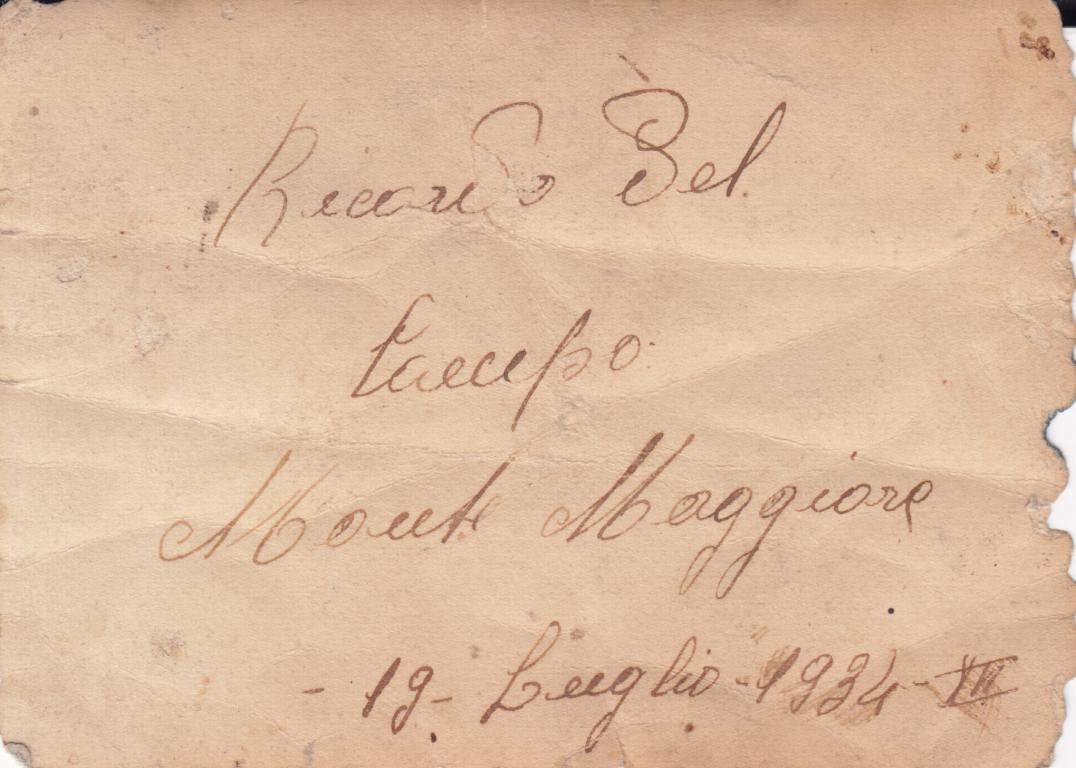 Ricordo Del
Campo
Monte Maggiore
- 19 - Luglio - 1934 - XII